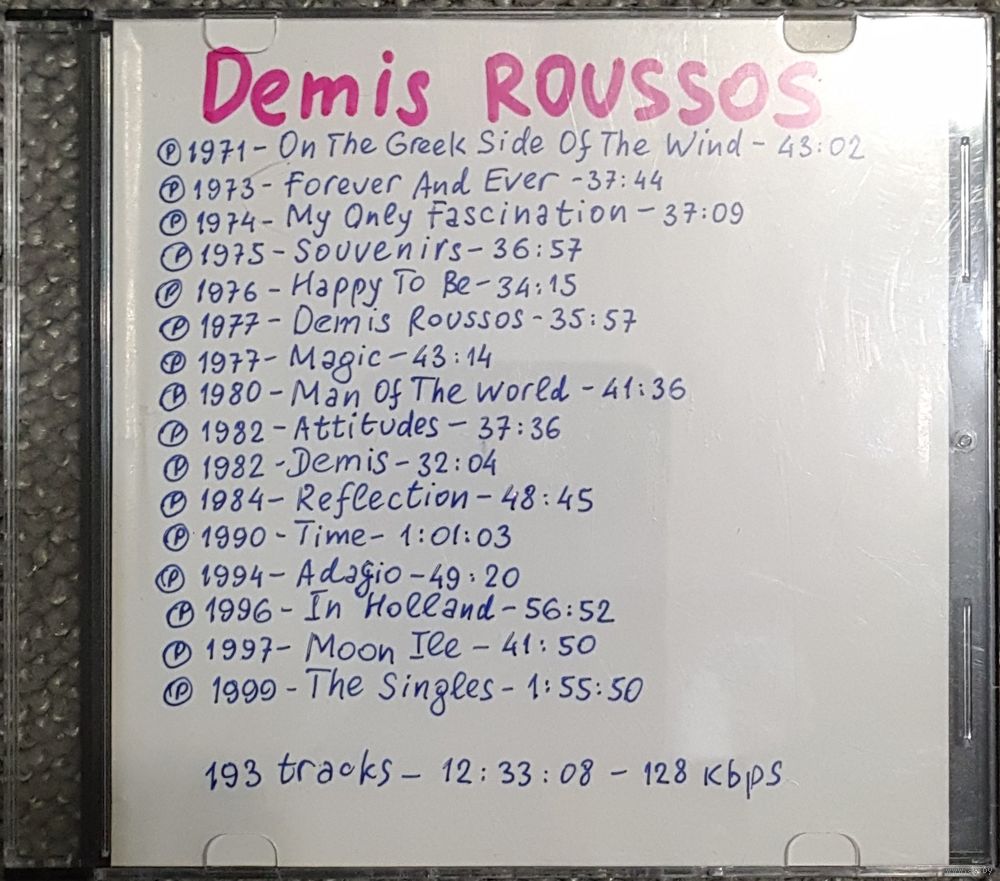 Demis ROUSSOS
℗ 1971 - On The Greek Side Of The Wind - 43:02
℗ 1973 - Forever And Ever - 37:44
℗ 1974 - My Only Fascination - 37:09
℗ 1975 - Souvenirs - 36:57
℗ 1976 - Happy To Be - 34:15
℗ 1977 - Demis Roussos - 35:57
℗ 1977 - Magic - 43:14
℗ 1980 - Man Of The World - 41:36
℗ 1982 - Attitudes - 37:36
℗ 1982 - Demis - 32:04
℗ 1984 - Reflection - 48:45
℗ 1990 - Time - 1:01:03
℗ 1994 - Adagio - 49:20
℗ 1996 - In Holland - 56:52
℗ 1997 - Moon Ile - 41:50
℗ 1999 - The Singles - 1:55:50
193 tracks - 12:33:08 - 128 kbps